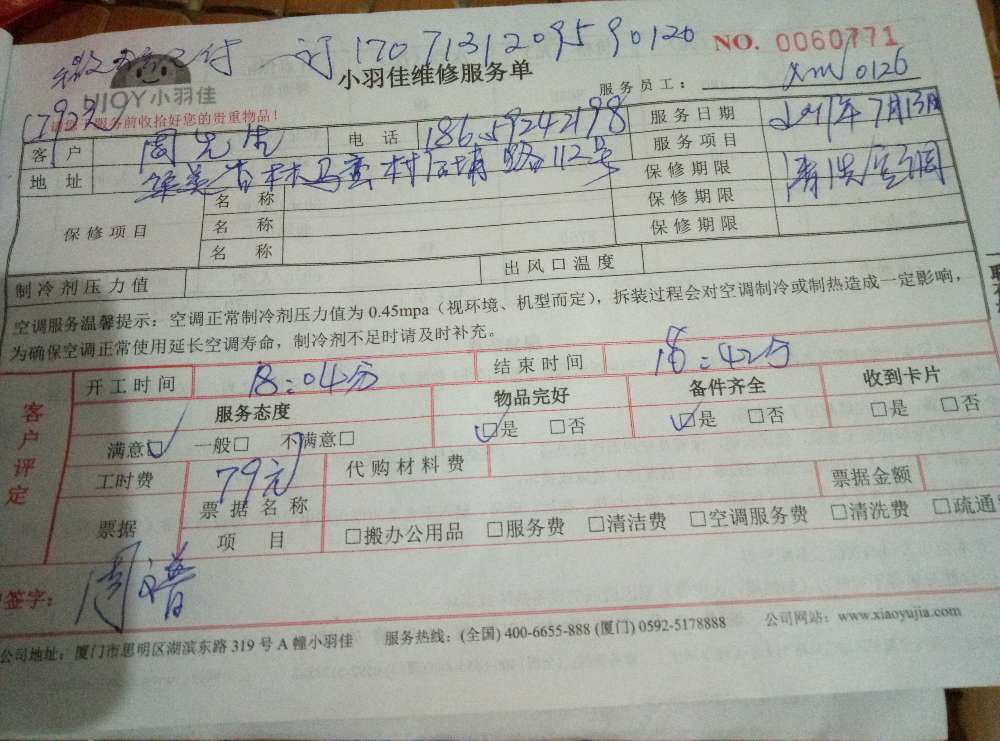 订 1707131209590120
NO. 0060771
小羽佳维修服务单
NJOY小羽佳
服务员工： xm 0126
服务前收拾好您的贵重物品！
客 户 周先生 电 话 18659242198 服务日期 2017年7月13日
地 址 村 路112号 服务项目 清洗空调
保修项目 名 称 保修期限
名 称 保修期限
名 称 保修期限
制冷剂压力值 出风口温度
空调服务温馨提示：空调正常制冷剂压力值为 0.45mpa（视环境、机型而定），拆装过程会对空调制冷或制热造成一定影响，
为确保空调正常使用延长空调寿命，制冷剂不足时请及时补充。
客户评定
开工时间 18:04分 结束时间 18:42分
服务态度 物品完好 备件齐全 收到卡片
满意□ 一般□ 不满意□ □是 □否 □是 □否 □是 □否
工时费 79元 代购材料费
票据 票 据 名 称 票据金额
项 目 □搬办公用品 □服务费 □清洁费 □空调服务费 □清洗费 □疏通
签字：
公司地址：厦门市思明区湖滨东路 319 号 A 幢小羽佳 服务热线：(全国) 400-6655-888 (厦门) 0592-5178888 公司网站：www.xiaoyujia.com